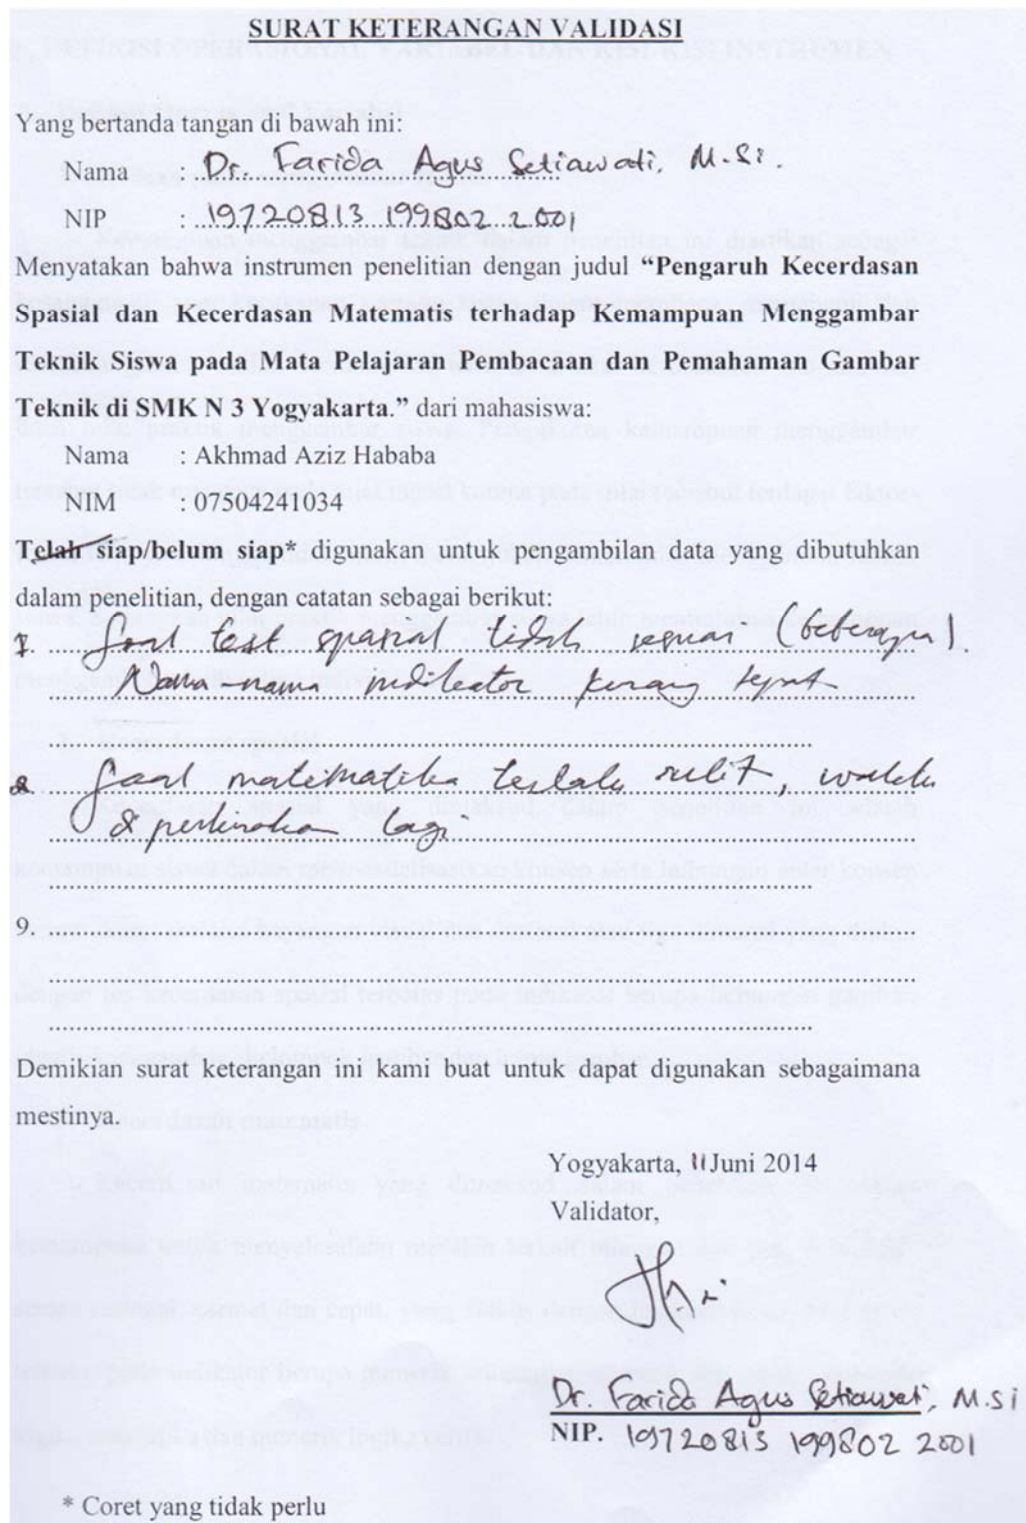 SURAT KETERANGAN VALIDASI
Yang bertanda tangan di bawah ini:
Nama : Dr. Farida Agus Setiawati, M.Si.
NIP : 19720813 199802 2 001
Menyatakan bahwa instrumen penelitian dengan judul “Pengaruh Kecerdasan
Spasial dan Kecerdasan Matematis terhadap Kemampuan Menggambar
Teknik Siswa pada Mata Pelajaran Pembacaan dan Pemahaman Gambar
Teknik di SMK N 3 Yogyakarta.” dari mahasiswa:
Nama : Akhmad Aziz Hababa
NIM : 07504241034
Telah siap/belum siap* digunakan untuk pengambilan data yang dibutuhkan
dalam penelitian, dengan catatan sebagai berikut:
1. Soal test spasial tidak sesuai (beberapa).
Nama-nama indikator kurang tepat
2. Soal matematika terlalu sulit, waktu
diperkirakan lagi
9.
Demikian surat keterangan ini kami buat untuk dapat digunakan sebagaimana
mestinya.
Yogyakarta, 11 Juni 2014
Validator,
Dr. Farida Agus Setiawati, M.Si
NIP. 19720813 199802 2001
* Coret yang tidak perlu